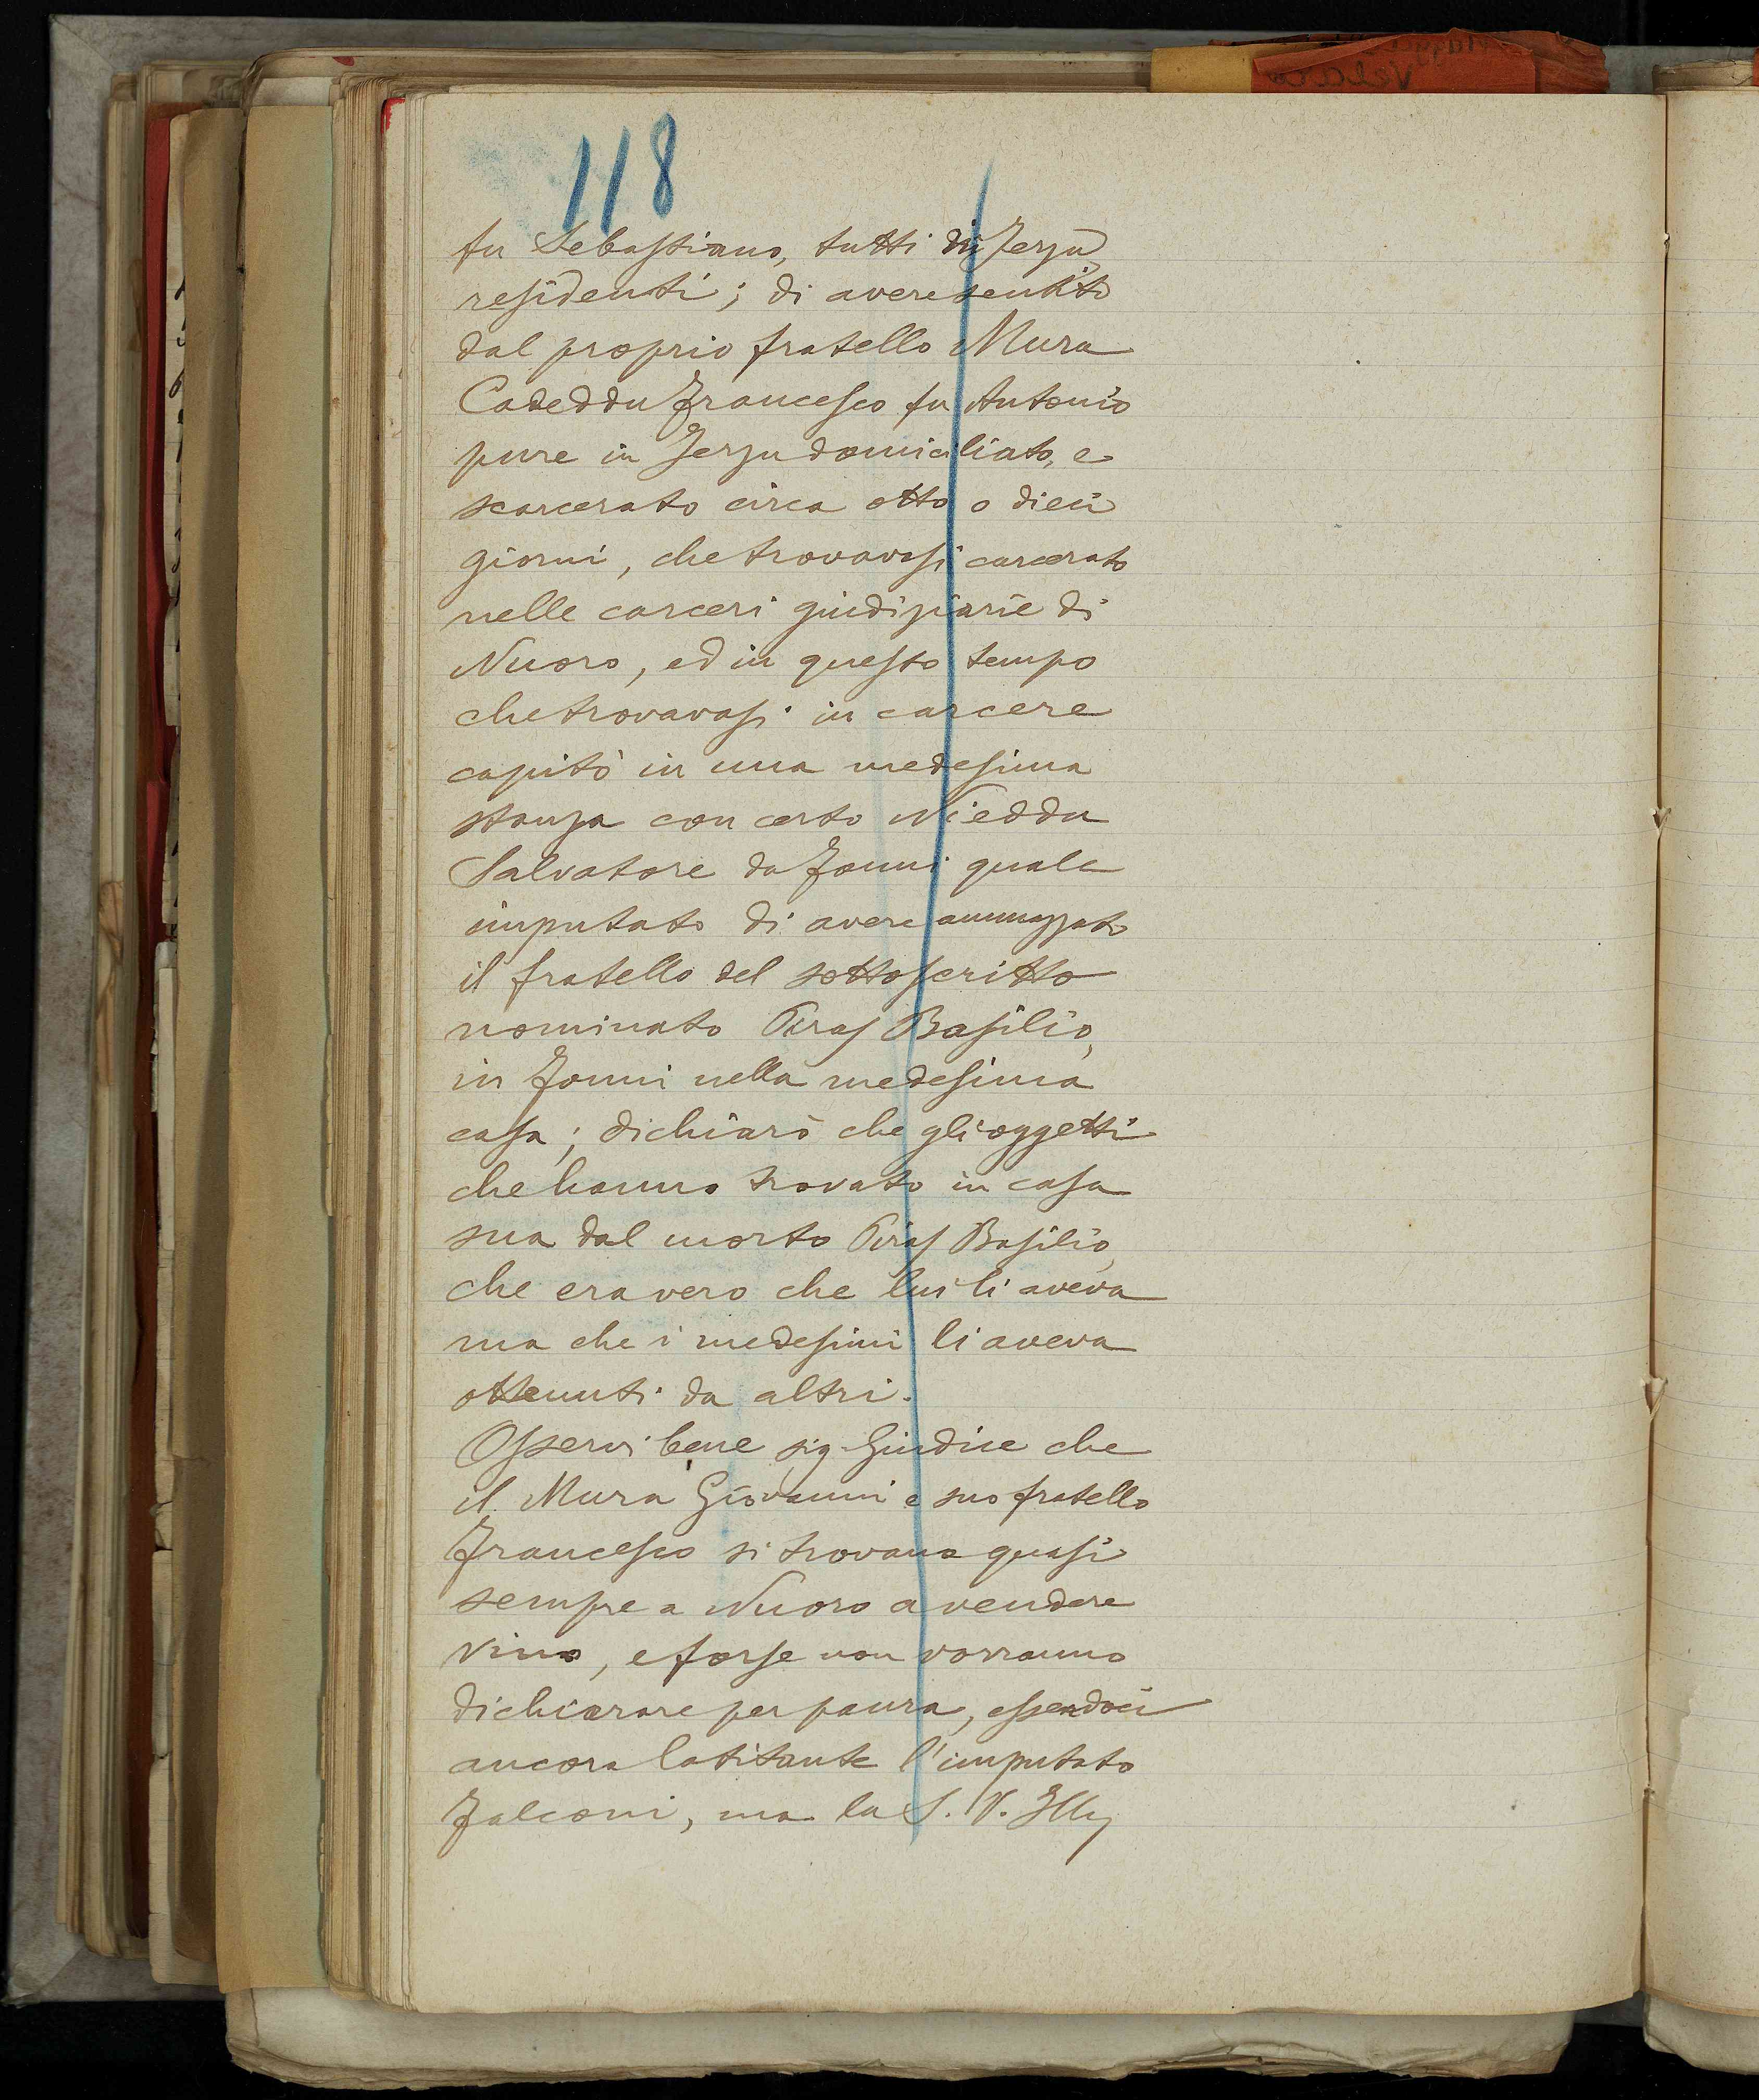 118
fu Sebastiano, tutti di Jerzu
residenti; di avere sentito
dal proprio fratello Mura
Cadeddu Francesco fu Antonio
pure in Jerzu domiciliato, e
scarcerato circa otto o dieci
giorni, che trovavasi carcerato
nelle carceri giudiziarie di
Nuoro, ed in questo tempo
che trovavasi in carcere
capitò in una medesima
stanza con certo Nieddu
Salvatore da Fonni quale
imputato di avere ammazzato
il fratello del sottoscritto
nominato Piras Basilio,
in Fonni nella medesima
casa; dichiarò che gli oggetti
che hanno trovato in casa
sua dal morto Piras Basilio,
che era vero che lui li aveva
ma che i medesimi li aveva
ottenuti da altri.
Osservi bene sig. Giudice che
il Mura Giovanni e suo fratello
Francesco si trovano quasi
sempre a Nuoro a vendere
vino, e forse non vorranno
dichiarare per paura, essendoci
ancora latitante l'imputato
Falconi, ma la S. V. Ill